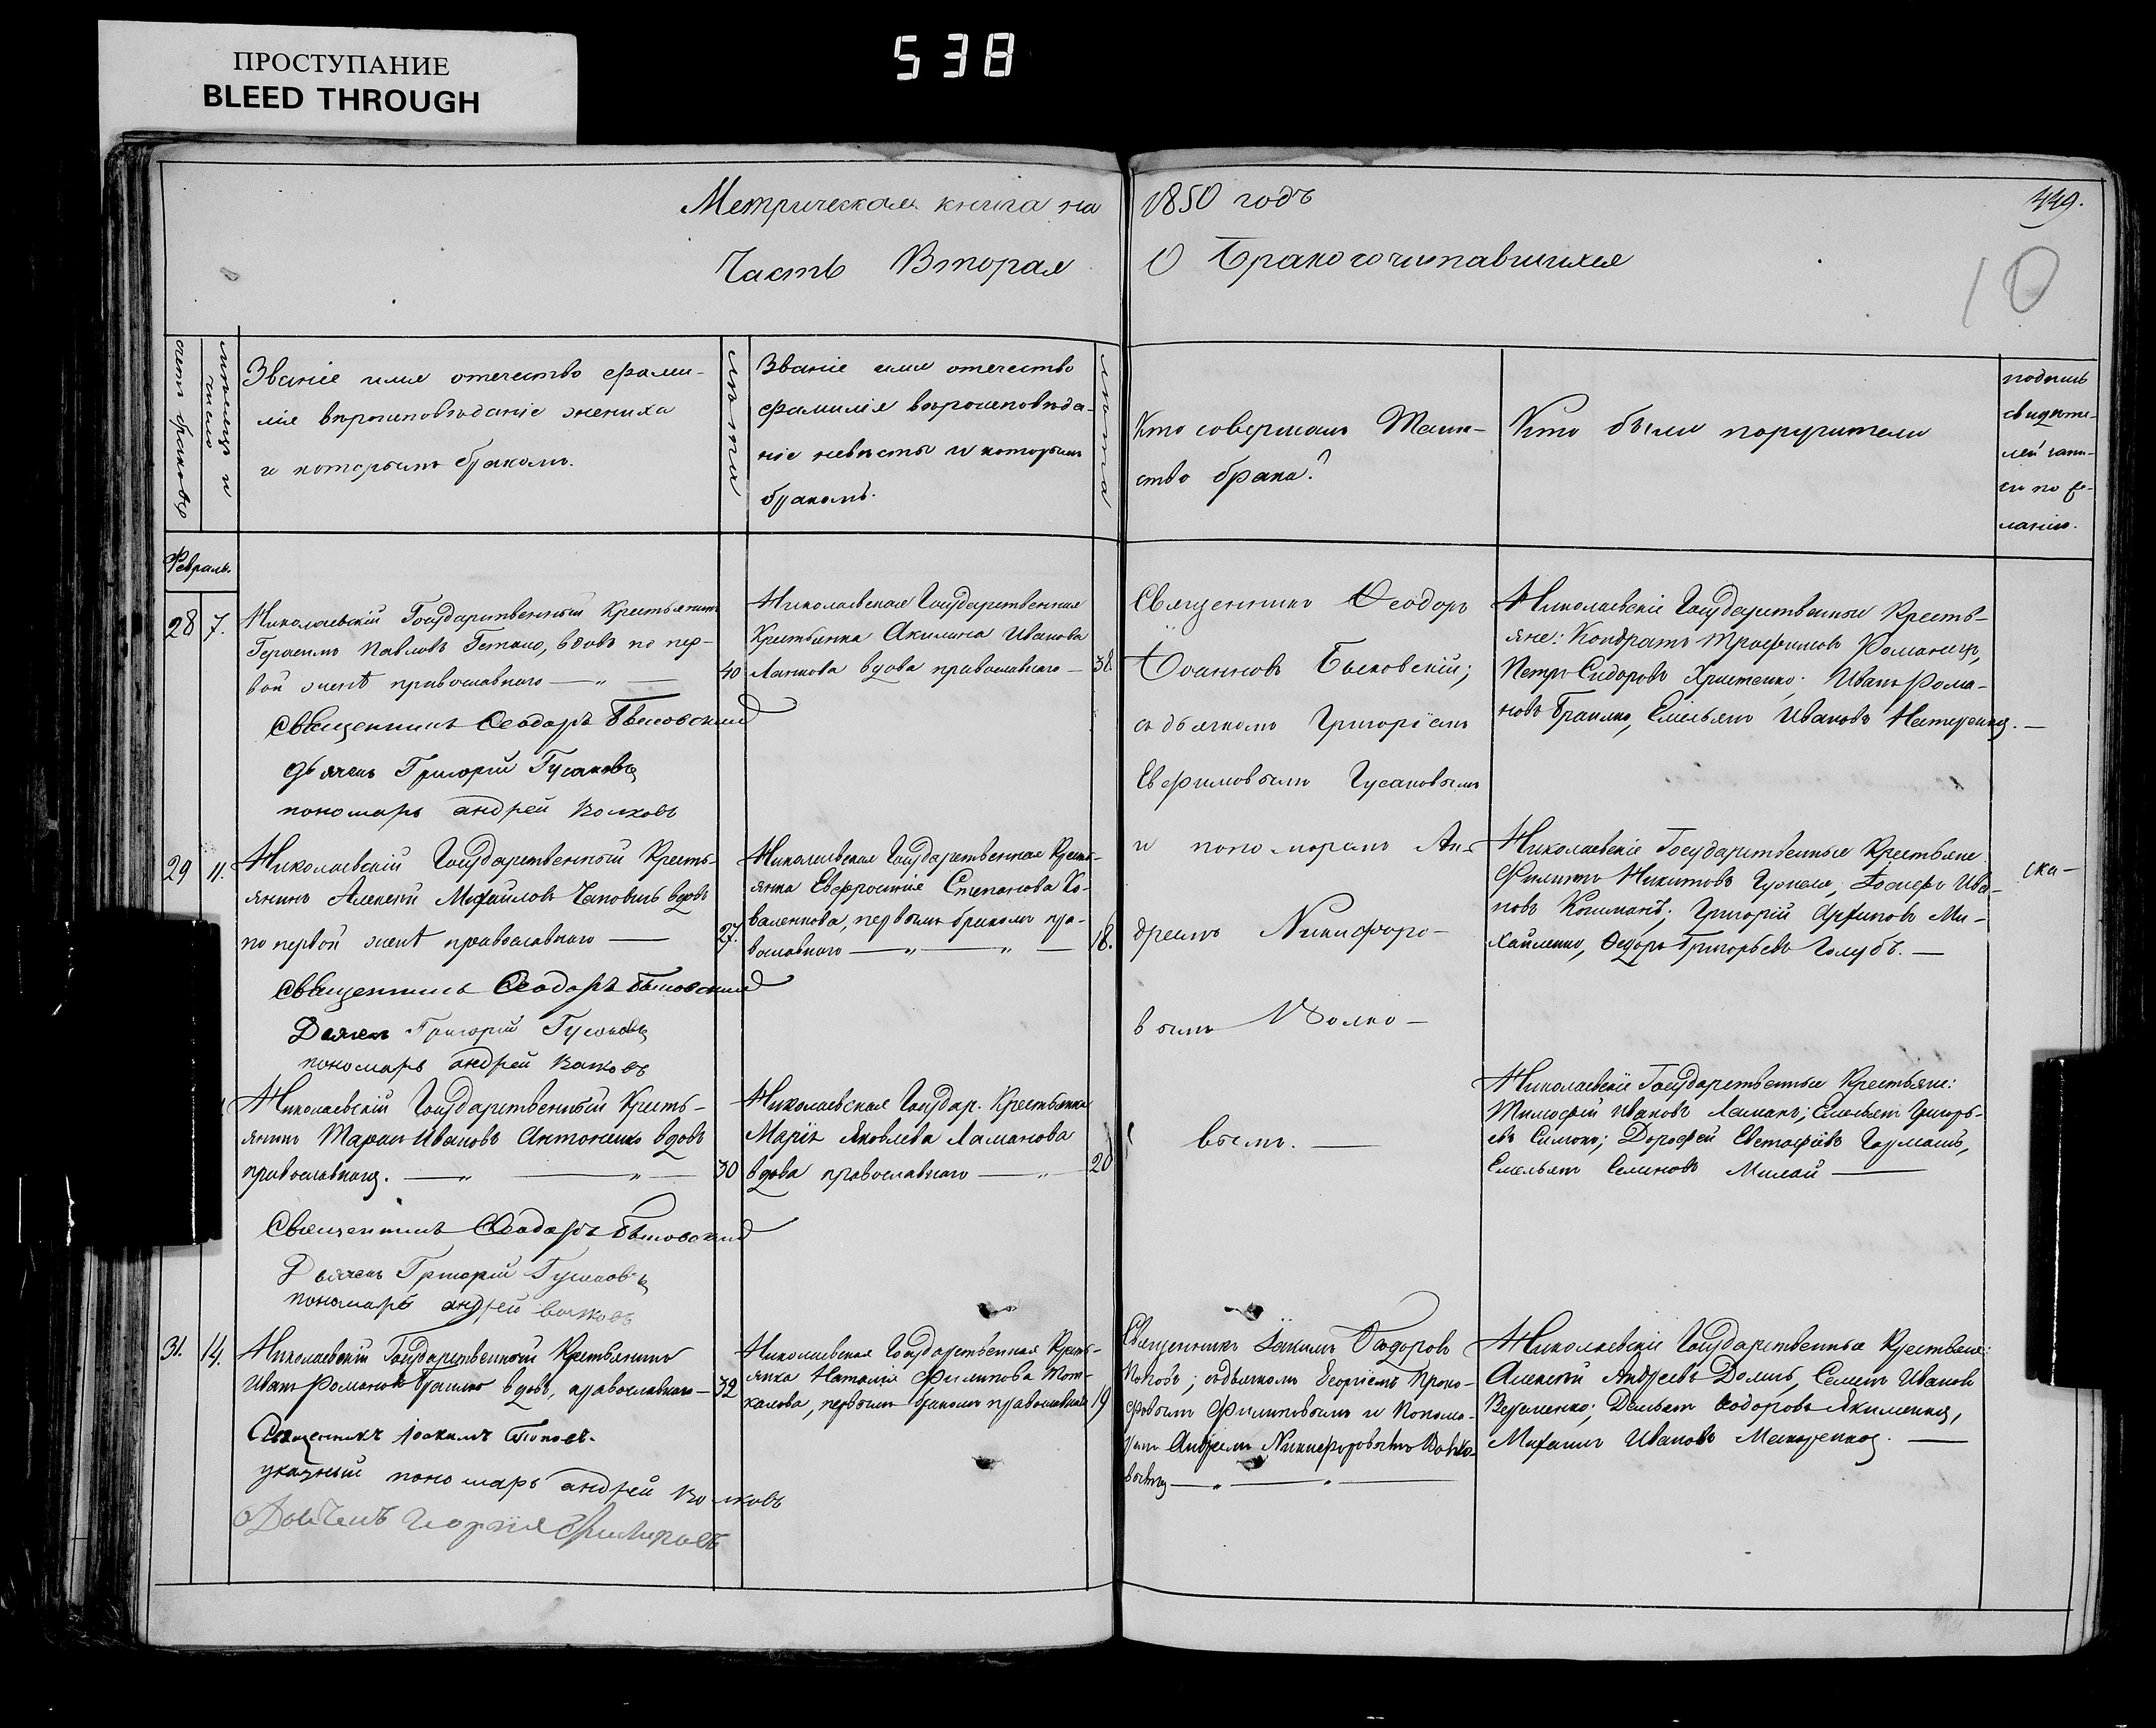 ПРОСТУПАНИЕ
BLEED THROUGH
538
Метрическая книга на 1850 годъ
449.
Часть Вторая О Бракосочитавшихся
10
счетъ браковъ
мѣсяцъ и число
Званіе имя отечество фами-
лія вѣроисповѣданіе жениха
и которымъ бракомъ.
лѣта
Званіе имя отечество
фамилія вѣроисповѣда-
ніе невѣсты и которымъ
бракомъ.
лѣта
Кто совершалъ Таин-
ство брака?
Кто были поручители
подпись
свидѣте-
лей запи-
си по же-
ланію.
Февраль.
28 7.
Николаевскій Государственный Крестьянинъ
Герасимъ Павловъ вдовъ по пер-
вой женѣ православнаго — „ — 40
Священникъ Ѳеодоръ Быковскій
Дьячекъ Григорій Гусаковъ
пономарь андрей Волковъ
Николаевская Государственная
Крестьянка Акилина Иванова
вдова православнаго — 38.
Священникъ Ѳеодоръ
Іоанновъ Быковскій;
съ дьячкомъ Григоріемъ
Евфимовымъ Гусаковымъ
и пономаремъ Ан-
дреемъ Никифоро-
вымъ Волко-
вымъ. —
Николаевскіе Государственные Кресть-
яне: Кондратъ Трофимовъ Романецъ,
Петръ Сидоровъ Христенко; Иванъ Рома-
новъ Браилко, Емельянъ Ивановъ Нестеренко. —
29 11.
Николаевскій Государственный Кресть-
янинъ Алексѣй Михайловъ вдовъ
по первой женѣ православнаго — 27.
Священникъ Ѳеодоръ Быковскій
Дьячекъ Григорій Гусаковъ
пономарь андрей Волковъ
Николаевская Государственная Кресть-
янка Евфросинія Степанова Ко-
валенкова, первымъ бракомъ пра-
вославнаго — „ — „ — 18.
Николаевскіе Государственные Крестьяне
Филиппъ Никитовъ Іосифъ Ива-
новъ Григорій Архиповъ Ми-
хайленко, Ѳедоръ Григорьевъ Голубъ. —
ска-
Николаевскій Государственный Кресть-
янинъ Тарасъ Ивановъ Антоненко вдовъ
православнаго. — „ — „ — 30
Священникъ Ѳеодоръ Быковскій
Дьячекъ Григорій Гусаковъ
пономарь андрей волковъ
Николаевская Государ. Крестьянка
Марія Яковлева Ламанова
вдова православнаго — „ — 20
Николаевскіе Государственные Крестьяне:
Тимофей Ивановъ Ламанъ; Емельянъ Григорь-
евъ Дорофей Евстафіевъ
Емельянъ Семеновъ Милай —
31. 14.
Николаевскій Государственный Крестьянинъ
Иванъ Романовъ Браилко вдовъ, православнаго — 32
Священникъ Іоакимъ Поповъ.
указный пономарь андрей Волковъ
Дьячекъ Георгій Филиповъ
Николаевская Государственная Кресть-
янка Наталія Филипова
первымъ бракомъ православнаго 19
Священникъ Іоакимъ Ѳеодоровъ
Поповъ; съ дьячкомъ Георгіемъ Проко-
фовымъ Филиповымъ и Понома-
ремъ Андреемъ Никифоровымъ Волко-
вымъ — „ — „ —
Николаевскіе Государственные Крестьяне:
Алексѣй Андреевъ Семенъ Ивановъ
Демьянъ Ѳеодоровъ Якименко,
Михаилъ Ивановъ Макаренко. —